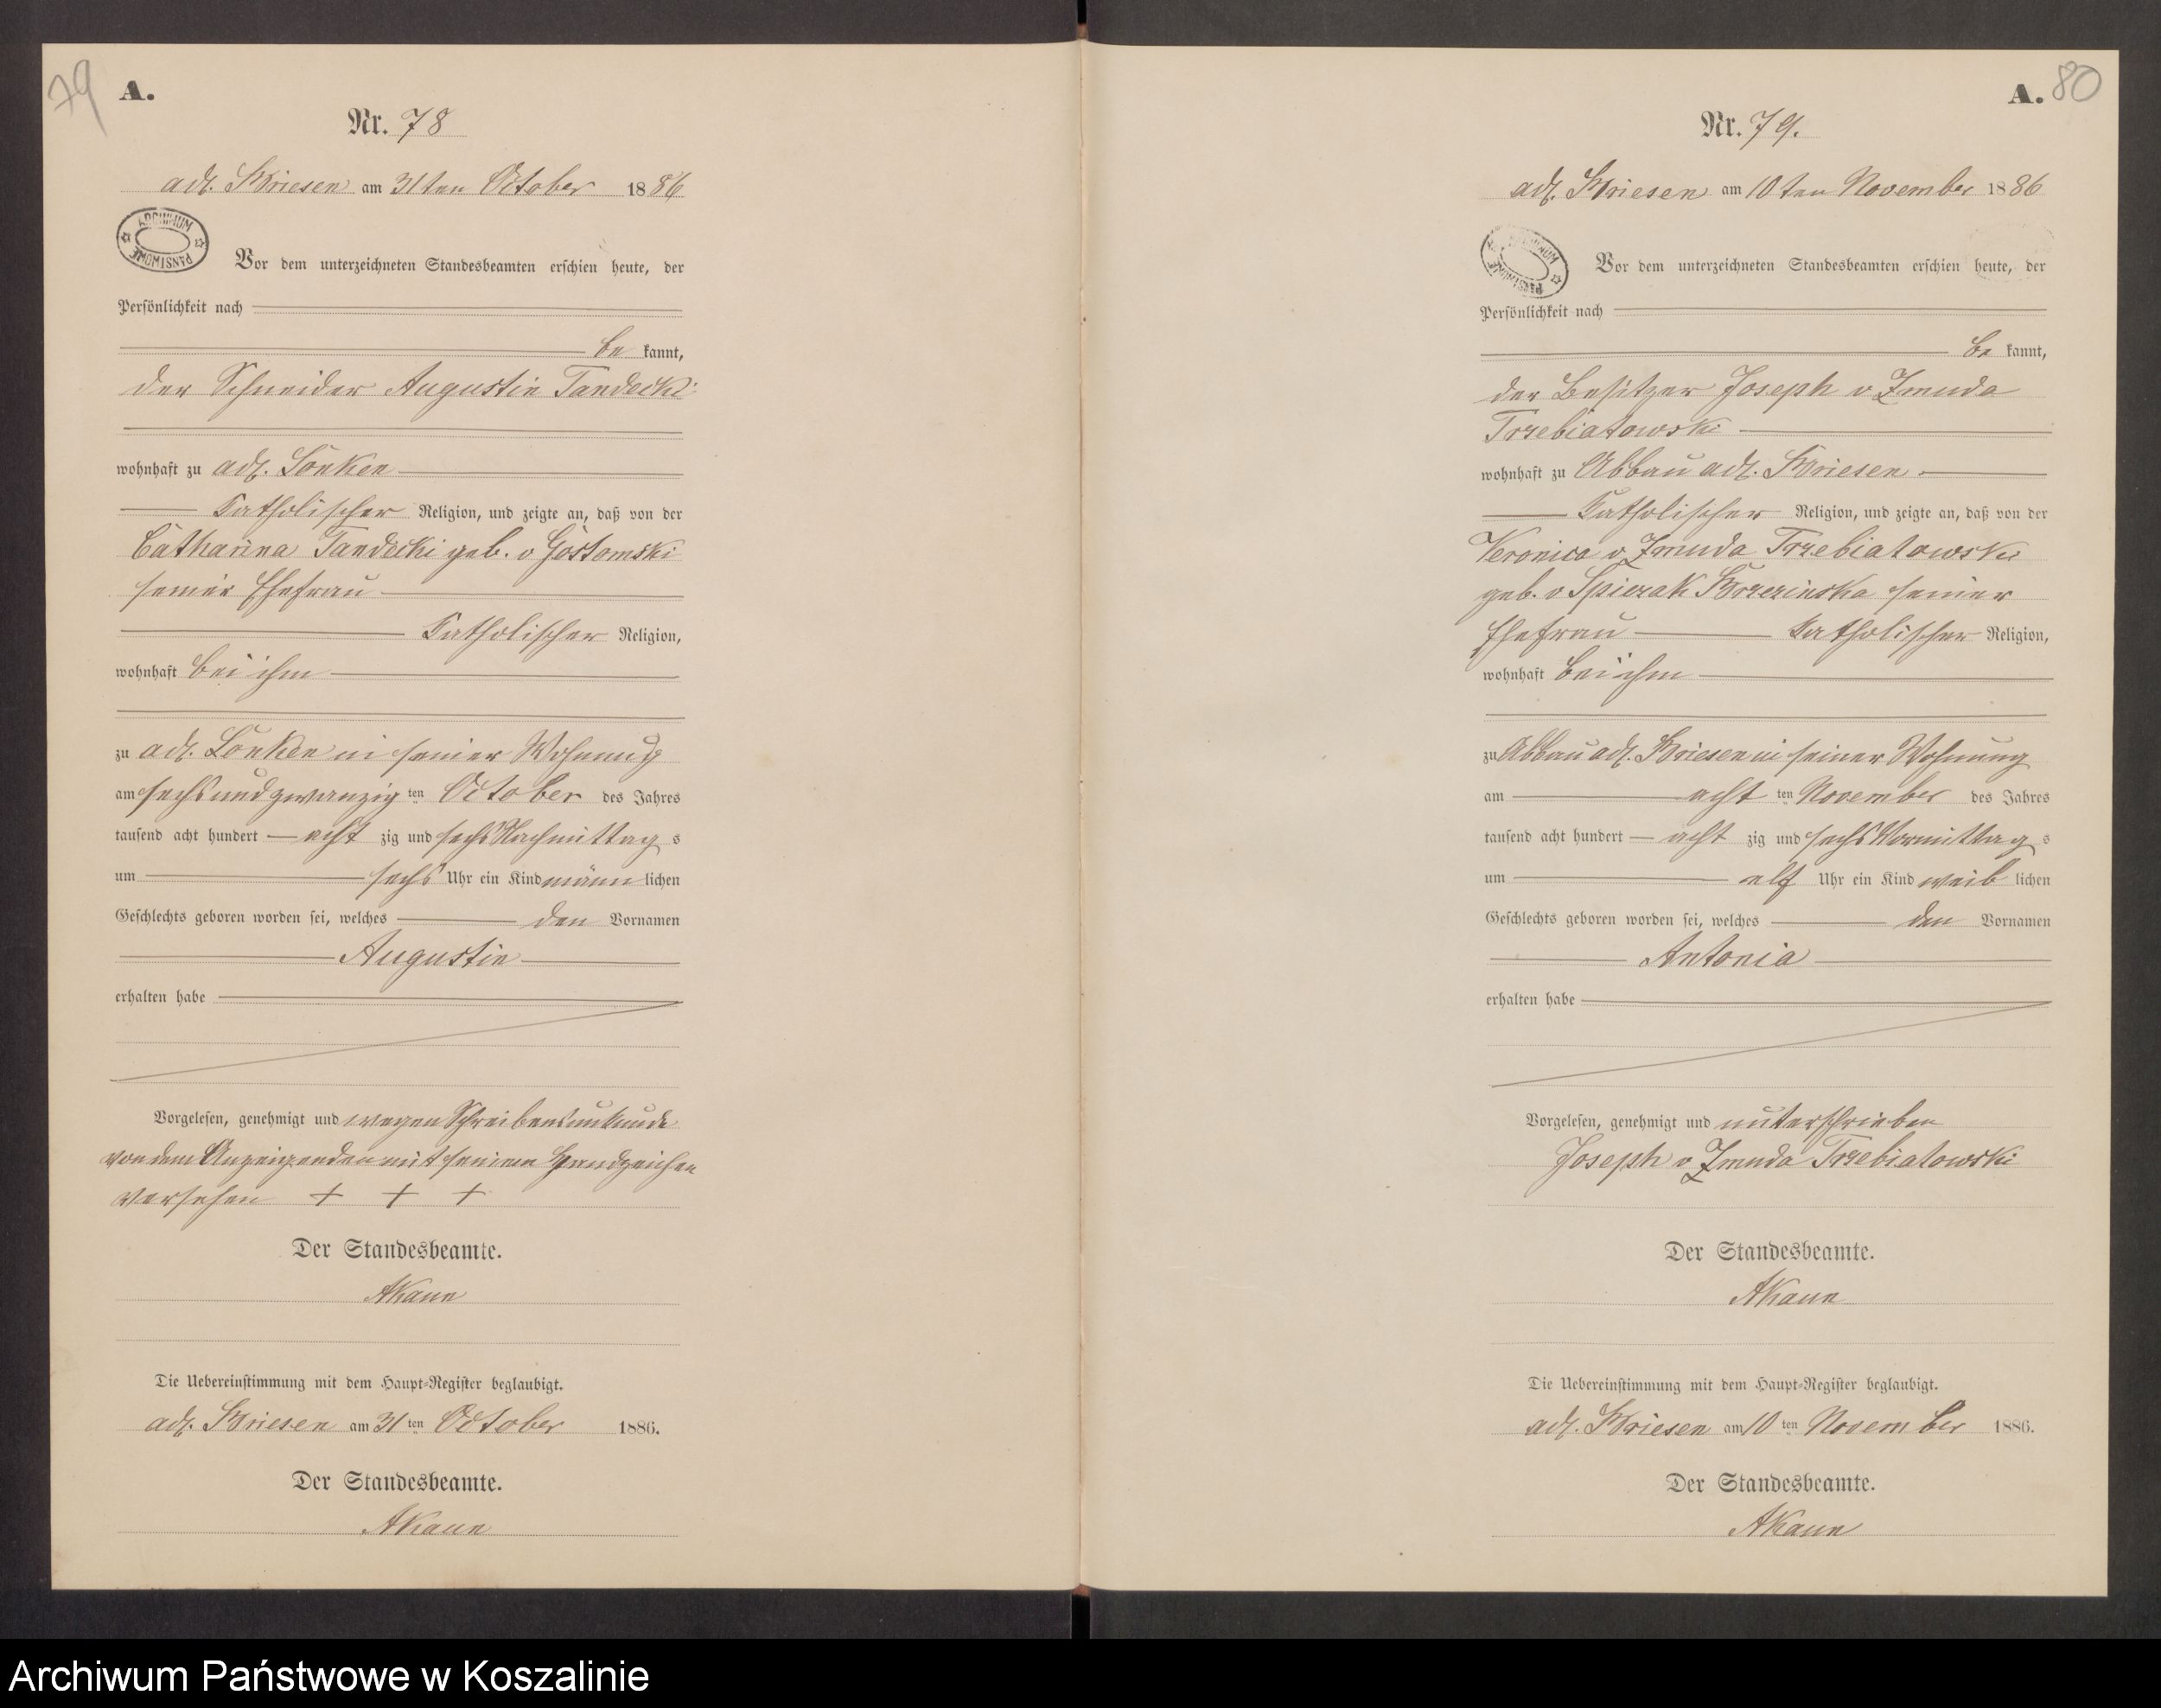 79
A.
Nr. 78
adl. Briesen am 31ten October 1886
ARCHIWUM PAŃSTWOWE
Vor dem unterzeichneten Standesbeamten erschien heute, der
Persönlichkeit nach
be kannt,
der Schneider Augustin Tandecki
wohnhaft zu adl. Lonken
Katholischer Religion, und zeigte an, daß von der
Catharina Tandecki geb. v Gostomski
seiner Ehefrau
Katholischer Religion,
wohnhaft bei ihm
zu adl. Lonken in seiner Wohnung
am sechsundzwanzig ten October des Jahres
tausend acht hundert acht zig und sechs Nachmittag s
um sechs Uhr ein Kind männ lichen
Geschlechts geboren worden sei, welches den Vornamen
Augustin
erhalten habe
Vorgelesen, genehmigt und wegen Schreibensunkunde
von dem Anzeigenden mit seinem Handzeichen
versehen + + +
Der Standesbeamte.
AKaun
Die Uebereinstimmung mit dem Haupt-Register beglaubigt.
adl. Briesen am 31 ten October 1886.
Der Standesbeamte.
AKaun
A. 80
Nr. 79.
adl. Briesen am 10 ten November 1886
ARCHIWUM PAŃSTWOWE
Vor dem unterzeichneten Standesbeamten erschien heute, der
Persönlichkeit nach
be kannt,
der Besitzer Joseph v Zmuda
Trzebiatowski
wohnhaft zu Abbau adl. Briesen
Katholischer Religion, und zeigte an, daß von der
Veronica v Zmuda Trzebiatowski
geb. v Spiczak Brzezinska seiner
Ehefrau Katholischer Religion,
wohnhaft bei ihm
zu Abbau adl. Briesen in seiner Wohnung
am acht ten November des Jahres
tausend acht hundert acht zig und sechs Vormittag s
um elf Uhr ein Kind weib lichen
Geschlechts geboren worden sei, welches den Vornamen
Antonia
erhalten habe
Vorgelesen, genehmigt und unterschrieben
Joseph v Zmuda Trzebiatowski
Der Standesbeamte.
AKaun
Die Uebereinstimmung mit dem Haupt-Register beglaubigt.
adl. Briesen am 10 ten November 1886.
Der Standesbeamte.
AKaun
Archiwum Państwowe w Koszalinie